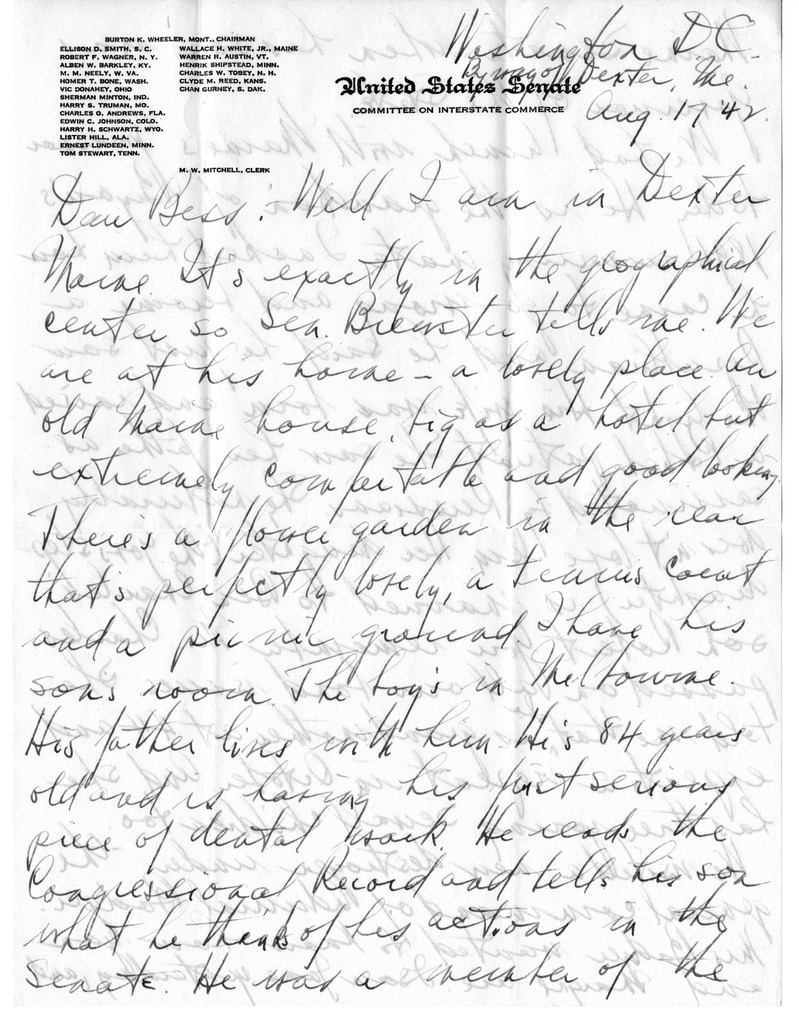 BURTON K. WHEELER, MONT., CHAIRMAN
ELLISON D. SMITH, S. C.
ROBERT F. WAGNER, N. Y.
ALBEN W. BARKLEY, KY.
M. M. NEELY, W. VA.
HOMER T. BONE, WASH.
VIC DONAHEY, OHIO
SHERMAN MINTON, IND.
HARRY S. TRUMAN, MO.
CHARLES O. ANDREWS, FLA.
EDWIN C. JOHNSON, COLO.
HARRY H. SCHWARTZ, WYO.
LISTER HILL, ALA.
ERNEST LUNDEEN, MINN.
TOM STEWART, TENN.
WALLACE H. WHITE, JR., MAINE
WARREN R. AUSTIN, VT.
HENRIK SHIPSTEAD, MINN.
CHARLES W. TOBEY, N. H.
CLYDE M. REED, KANS.
CHAN GURNEY, S. DAK.
M. W. MITCHELL, CLERK
United States Senate
COMMITTEE ON INTERSTATE COMMERCE
Washington D.C.
By way of Dexter, Me.
Aug. 17 '42.
Dear Bess: Well I am in Dexter
Maine. It's exactly in the geographical
center so Sen. Brewster tells me. We
are at his home - a lovely place. An
old Maine house, big as a hotel but
extremely comfortable and good looking.
There's a flower garden in the rear
that's perfectly lovely, a tennis court
and a picnic ground. I have his
son's room. The boy's in Melbourne.
His father lives with him. He's 84 years
old and is having his first serious
piece of dental work. He reads the
Congressional Record and tells his son
what he thinks of his actions in the
Senate. He was a member of the